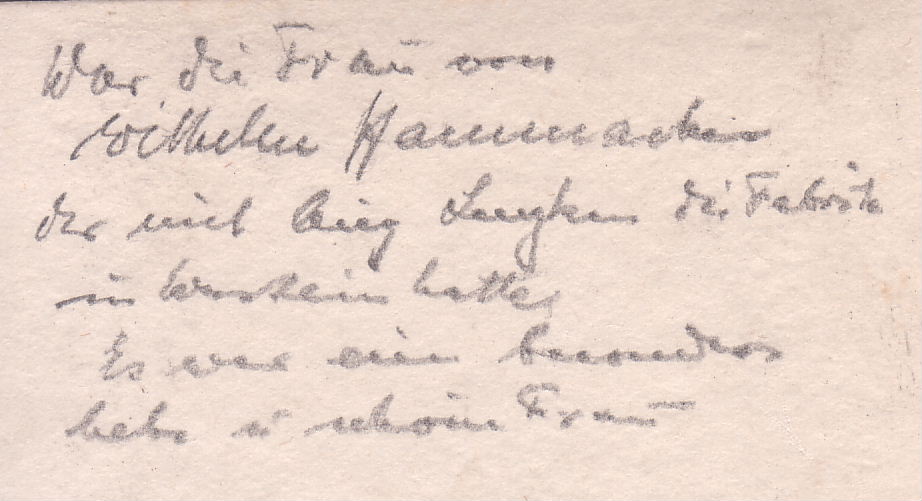 War die Frau von
Wilhelm Hammacher
der mit Aug die Fabrik
in hatte,
Es war eine besonders
liebe u schöne Frau